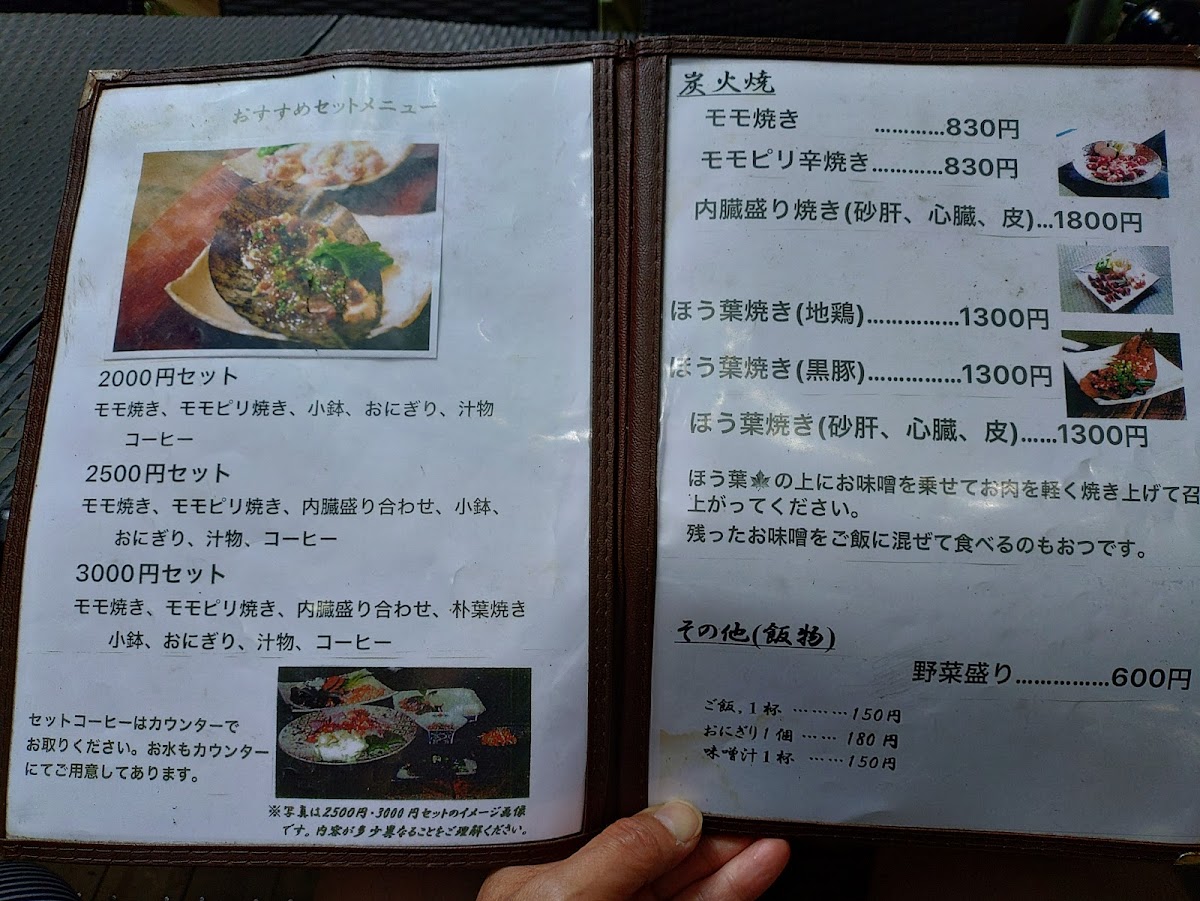 おすすめセットメニュー
2000円セット
モモ焼き、モモピリ焼き、小鉢、おにぎり、汁物
コーヒー
2500円セット
モモ焼き、モモピリ焼き、内臓盛り合わせ、小鉢、
おにぎり、汁物、コーヒー
3000円セット
モモ焼き、モモピリ焼き、内臓盛り合わせ、朴葉焼き
小鉢、おにぎり、汁物、コーヒー
セットコーヒーはカウンターで
お取りください。お水もカウンター
にてご用意してあります。
※写真は2500円・3000円セットのイメージ画像
です。内容が多少異なることをご理解ください。
炭火焼
モモ焼き …………830円
モモピリ辛焼き…………830円
内臓盛り焼き(砂肝、心臓、皮)…1800円
ほう葉焼き(地鶏)……………1300円
ほう葉焼き(黒豚)……………1300円
ほう葉焼き(砂肝、心臓、皮)……1300円
ほう葉🍁の上にお味噌を乗せてお肉を軽く焼き上げて召
上がってください。
残ったお味噌をご飯に混ぜて食べるのもおつです。
その他(飯物)
野菜盛り……………600円
ご飯、1杯 ………150円
おにぎり1個 …… 180円
味噌汁1杯 ……150円